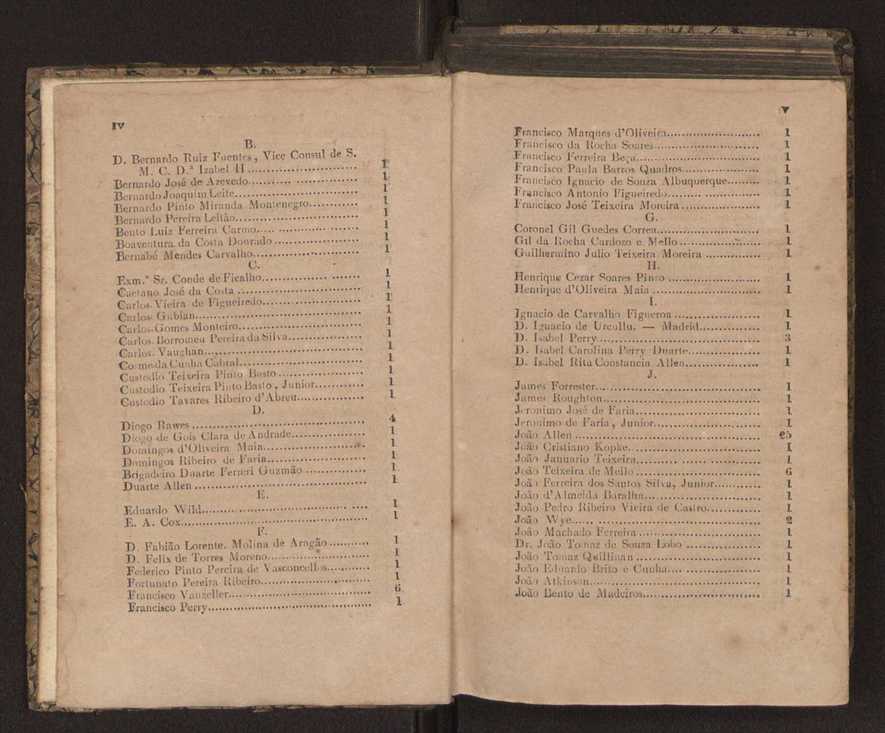 IV
B.
D. Bernardo Ruiz Fuentes, Vice Consul de S.
M. C. D.ª Izabel II ........................... 1
Bernardo José de Azevedo........................... 1
Bernardo Joaquim Leite........................... 1
Bernardo Pinto Miranda Montenegro........... 1
Bernardo Pereira Leitão........................... 1
Bento Luiz Ferreira Carmo........................... 1
Boaventura da Costa Dourado ..................... 1
Bernabé Mendes Carvalho........................... 1
C.
Exm.º Sr. Conde de Ficalho........................ 1
Caetano José da Costa ........................... 1
Carlos Vieira de Figueiredo........................ 1
Carlos Gubian........................... 1
Carlos Gomes Monteiro........................... 1
Carlos Borromeu Pereira da Silva.................. 1
Carlos Vaughan........................... 1
Cosme da Cunha Cabral........................... 1
Custodio Teixeira Pinto Basto ..................... 1
Custodio Teixeira Pinto Basto, Junior............ 1
Custodio Tavares Ribeiro d'Abreu.................. 1
D.
Diogo Rawes ........................... 4
Diogo de Gois Clara de Andrade.................. 1
Domingos d'Oliveira Maia........................ 1
Domingos Ribeiro de Faria........................ 1
Brigadeiro Duarte Ferreri Guzmão ............... 1
Duarte Allen ........................... 1
E.
Eduardo Wild........................... 1
E. A. Cox........................... 1
F.
D. Fabião Lorente. Molina de Aragão.......... 1
D. Felix de Torres Moreno........................ 1
Federico Pinto Pereira de Vasconcellos........... 1
Fortunato Pereira Ribeiro........................ 1
Francisco Vanzeller........................... 6
Francisco Perry........................... 1
V
Francisco Marques d'Oliveira........................ 1
Francisco da Rocha Soares........................ 1
Francisco Ferreira Beça........................... 1
Francisco Paula Barros Quadros.................. 1
Francisco Ignacio de Souza Albuquerque......... 1
Francisco Antonio Figueiredo..................... 1
Francisco José Teixeira Moreira .................. 1
G.
Coronel Gil Guedes Correa........................ 1
Gil da Rocha Cardozo e Mello .................. 1
Guilhermino Julio Teixeira Moreira ............ 1
H.
Henrique Cezar Soares Pinto ..................... 1
Henrique d'Oliveira Maia ........................ 1
I.
Ignacio de Carvalho Figueroa ..................... 1
D. Ignacio de Urcullu. — Madrid............... 1
D. Isabel Perry........................... 3
D. Isabel Carolina Perry Duarte.................. 1
D. Isabel Rita Constancia Allen.................. 1
J.
James Forrester........................... 1
James Roughton........................... 1
Jeronimo José de Faria........................... 1
Jeronimo de Faria, Junior........................ 1
João Allen ........................... 25
João Cristiano Kopke........................... 1
João Januario Teixeira........................... 1
João Teixeira de Mello ........................... 6
João Ferreira dos Santos Silva, Junior............ 1
João d'Almeida Baralha........................... 1
João Pedro Ribeiro Vieira de Castro............ 1
João Wye........................... 2
João Machado Ferreira ........................... 1
Dr. João Tomaz de Souza Lobo .................. 1
João Tomaz Quillinan ........................... 1
João Eduardo Brito e Cunha..................... 1
João Atkinson........................... 1
João Bento de Madeiros........................... 1